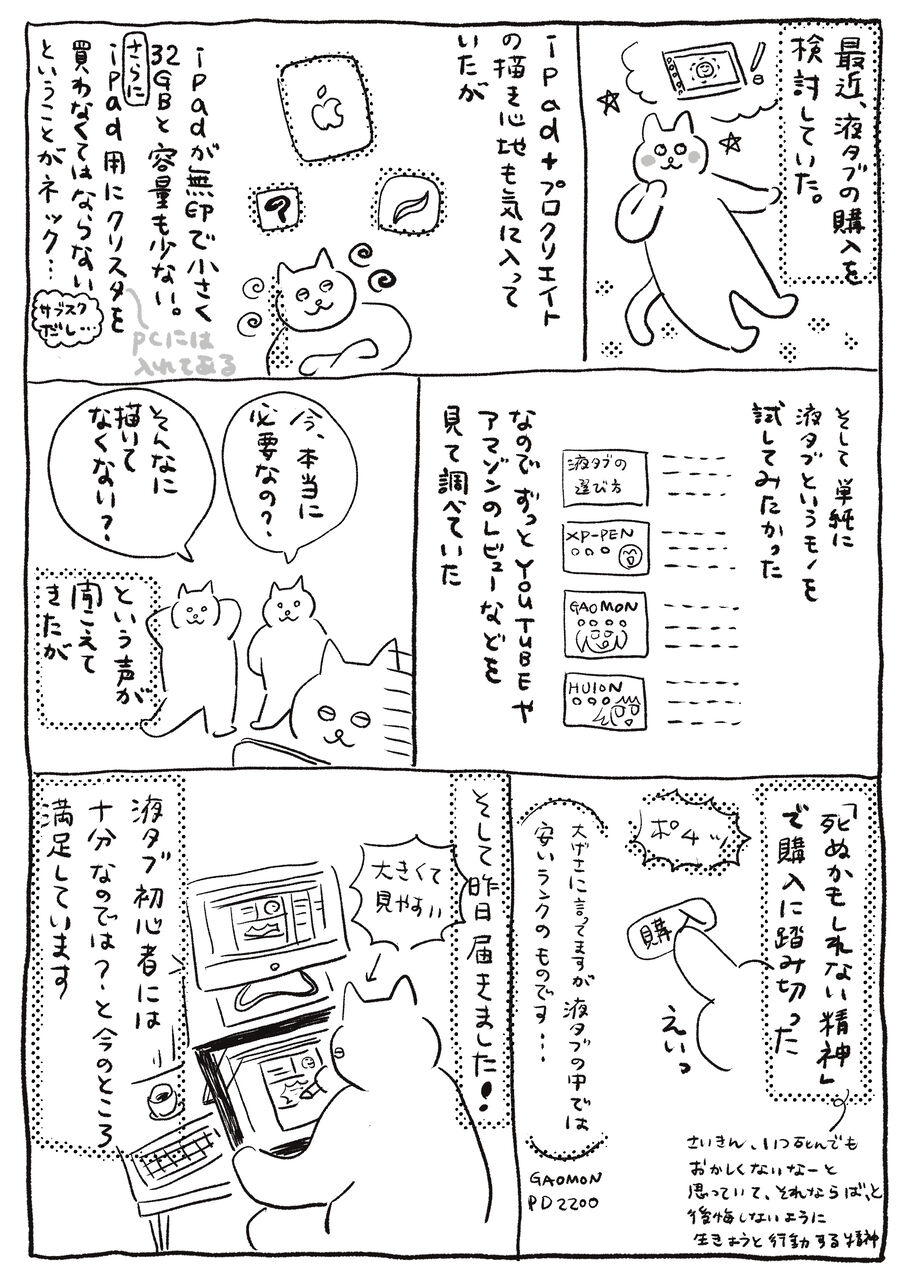 最近、液タブの購入を
検討していた。
iPad+プロクリエイト
の描き心地も気に入って
いたが
iPadが無印で小さく
32GBと容量も少ない。
さらに
iPad用にクリスタを
買わなくてはならない
ということがネック…
サブスク
だし…
PCには
入れてある
そして単純に
液タブというモノを
試してみたかった
液タブの
選び方
XP-PEN
GAOMON
HUION
なのでずっとYOUTUBEや
アマゾンのレビューなどを
見て調べていた
今、本当に
必要なの?
そんなに
描いて
なくない?
という声が
聞こえて
きたが
「死ぬかもしれない精神」
で購入に踏み切った
ポチッ
購入
えいっ
さいきん、いつ死んでも
おかしくないなーと
思っていて、それならば、と
後悔しないように
生きようと行動する精神
大げさに言ってますが液タブの中では
安いランクのものです…
GAOMON
PD2200
そして昨日届きました!
大きくて
見やすい
液タブ初心者には
十分なのでは?と今のところ
満足しています